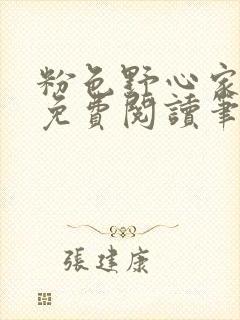 粉色野心家
免費閱讀筆
張建康